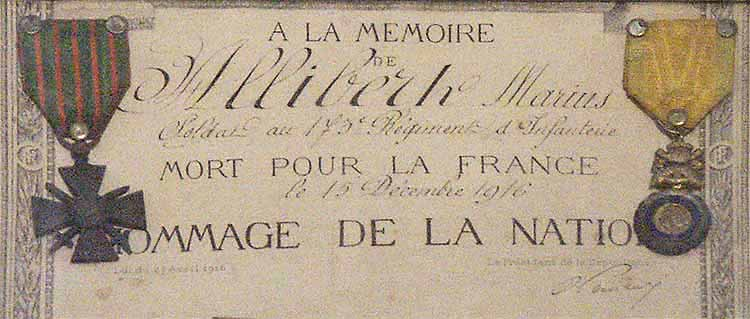 A LA MEMOIRE
DE
Allibert Marius
Soldat au 173e Régiment d'Infanterie
MORT POUR LA FRANCE
le 15 Décembre 1916
HOMMAGE DE LA NATION
Loi du 27 Avril 1916
Le Président de la République